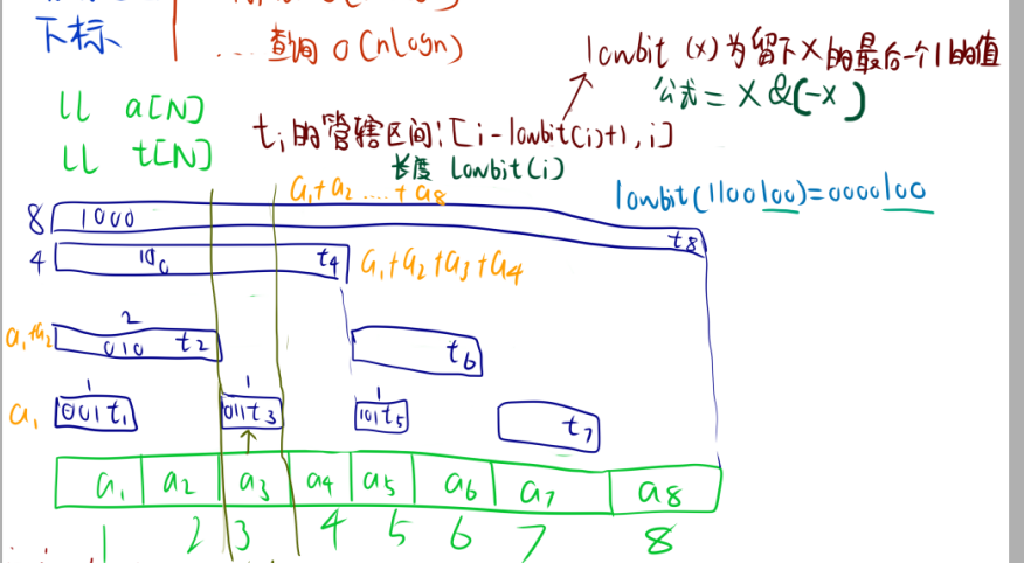 下标
... 查询 O(nlogn)
lowbit (x)为留下x的最后一个1的值
公式 = x &(-x)
ll a[N]
ll t[N]
ti的管辖区间:[i-lowbit(i)+1, i]
长度 lowbit(i)
lowbit(1100100)=0000100
a1+a2 .... + a8
8 1000 t8
4 100 t4 a1+a2+a3+a4
2
a1+a2 010 t2 t6
1 1 1
a1 001 t1 011 t3 101 t5 t7
a1 a2 a3 a4 a5 a6 a7 a8
1 2 3 4 5 6 7 8